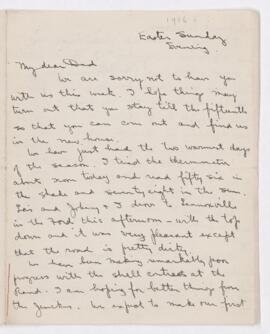 1916
Easter Sunday
Evening.
My dear Dad
We are sorry not to have you
with us this week. I hope things may
turn out that you stay till the fifteenth
so that you can come out and find us
in the new house.
We have just had the two warmest days
of the season. I tried the thermometer
about noon today and read fifty six in
the shade and seventy eight in the sun.
Lois and Johnny & I drove to Lennoxville
in the Ford this afternoon - with the top
down and it was very pleasant except
that the road is pretty dirty.
We have been making remarkably poor
progress with the shell contracts at the
Rand. I am hoping for better things from
the Jenckes. We expect to make our first